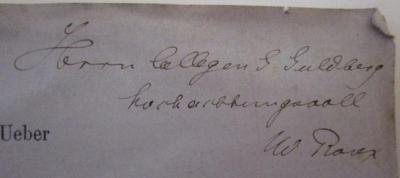 Herrn Collegen G Guldberg
hochachtungsvoll
W. Roux
Ueber